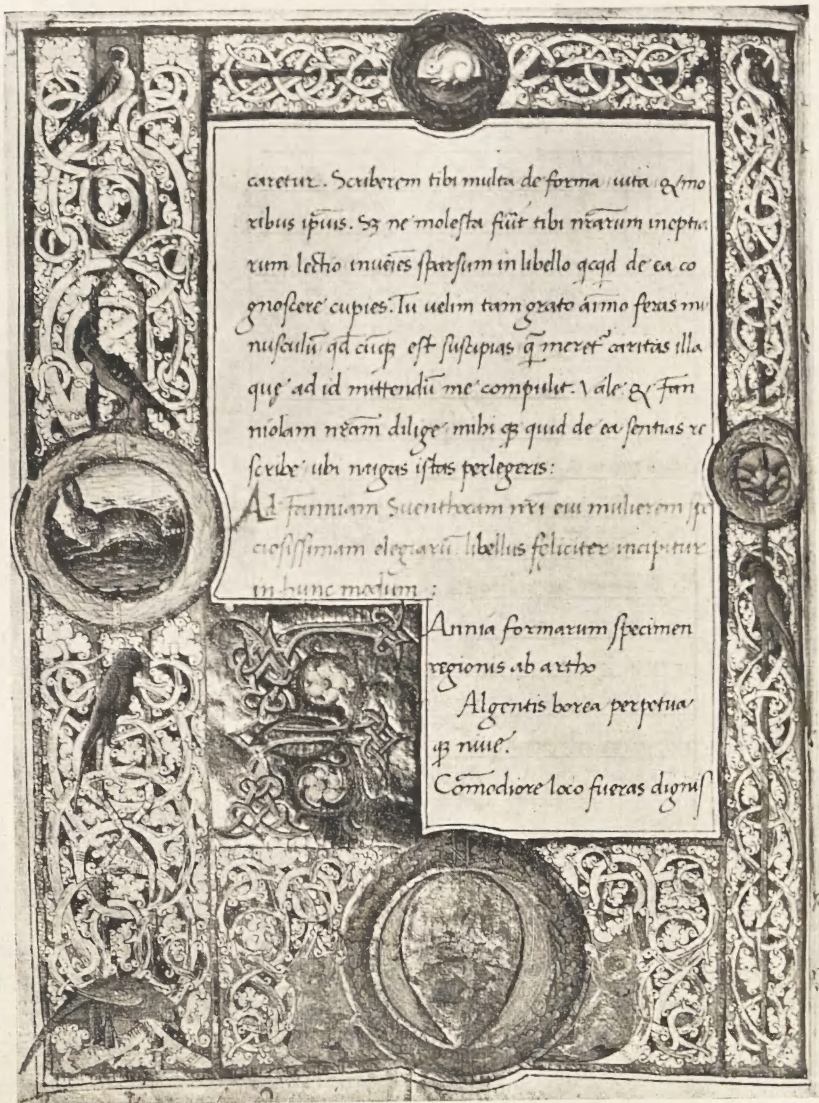 caretur. Scriberem tibi multa de forma uita & mo
ribus ip̄ius. Sꝫ ne molesta fiūt tibi nr̄arum ineptia
rum lectio inueīes sparsum in libello qcqd de ea co
gnoscere cupies. Tu uelim tam grato aīmo feras mu
nusculū qd cūqꝫ est suscipias q̄ meret᷑ caritas illa
quę ad id mittendū me compulit. Vale & Fan
niolam nr̄am dilige mihi qꝫ quid de ea sentias re
scribe ubi nugas istas perlegeris:
Ad Fanniam Suentham nr̄i eui mulierem spe
ciosissimam elegiarū libellus foeliciter incipitur
in hunc modum:
Annia formarum specimen
regionis ab artho
Algentis borea perpetua
qꝫ niue.
Com̄odiore loco fueras dignis